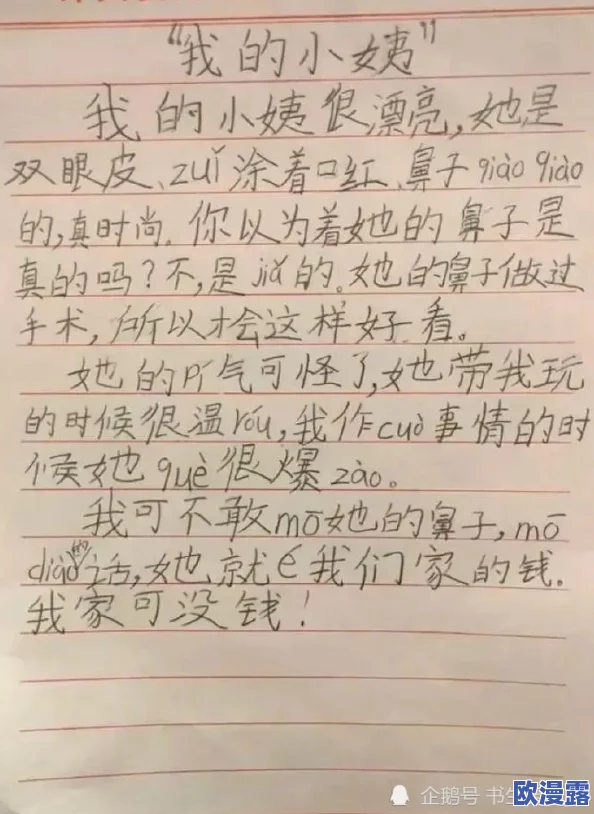 “我的小姨”
我的小姨很漂亮,她是
双眼皮、zuǐ涂着口红、鼻子qiào qiào
的,真时尚.你以为着她的鼻子是
真的吗?不,是jiǎ的。她的鼻子做过
手术,所以才会这样好看。
她的pí气可怪了,她带我玩
的时候很温róu,我作cuò事情的时
候她què很爆zào。
我可不敢mō她的鼻子,mō
diào的话,她就é我们家的钱.
我家可没钱!
企鹅号 书生
欧漫露